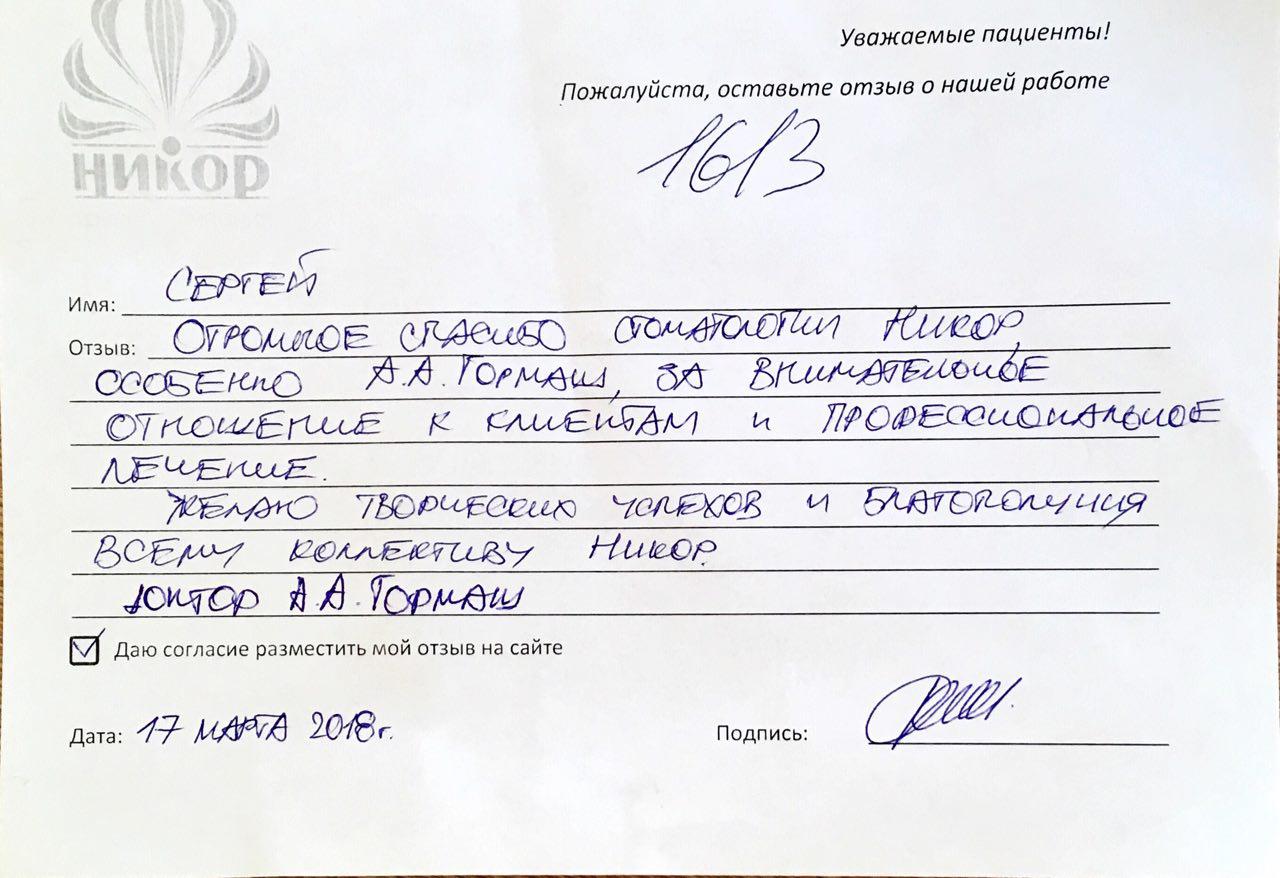 Уважаемые пациенты!
Пожалуйста, оставьте отзыв о нашей работе
НИКОР
1613
Имя: СЕРГЕЙ
Отзыв: ОГРОМНОЕ СПАСИБО СТОМАТОЛОГИИ НИКОР,
ОСОБЕННО А.А. ГОРМАШ, ЗА ВНИМАТЕЛЬНОЕ
ОТНОШЕНИЕ К КЛИЕНТАМ И ПРОФЕССИОНАЛЬНОЕ
ЛЕЧЕНИЕ.
ЖЕЛАЮ ТВОРЧЕСКИХ УСПЕХОВ И БЛАГОПОЛУЧИЯ
ВСЕМУ КОЛЛЕКТИВУ НИКОР.
ДОКТОР А.А. ГОРМАШ
Даю согласие разместить мой отзыв на сайте
Дата: 17 МАРТА 2018г. Подпись: